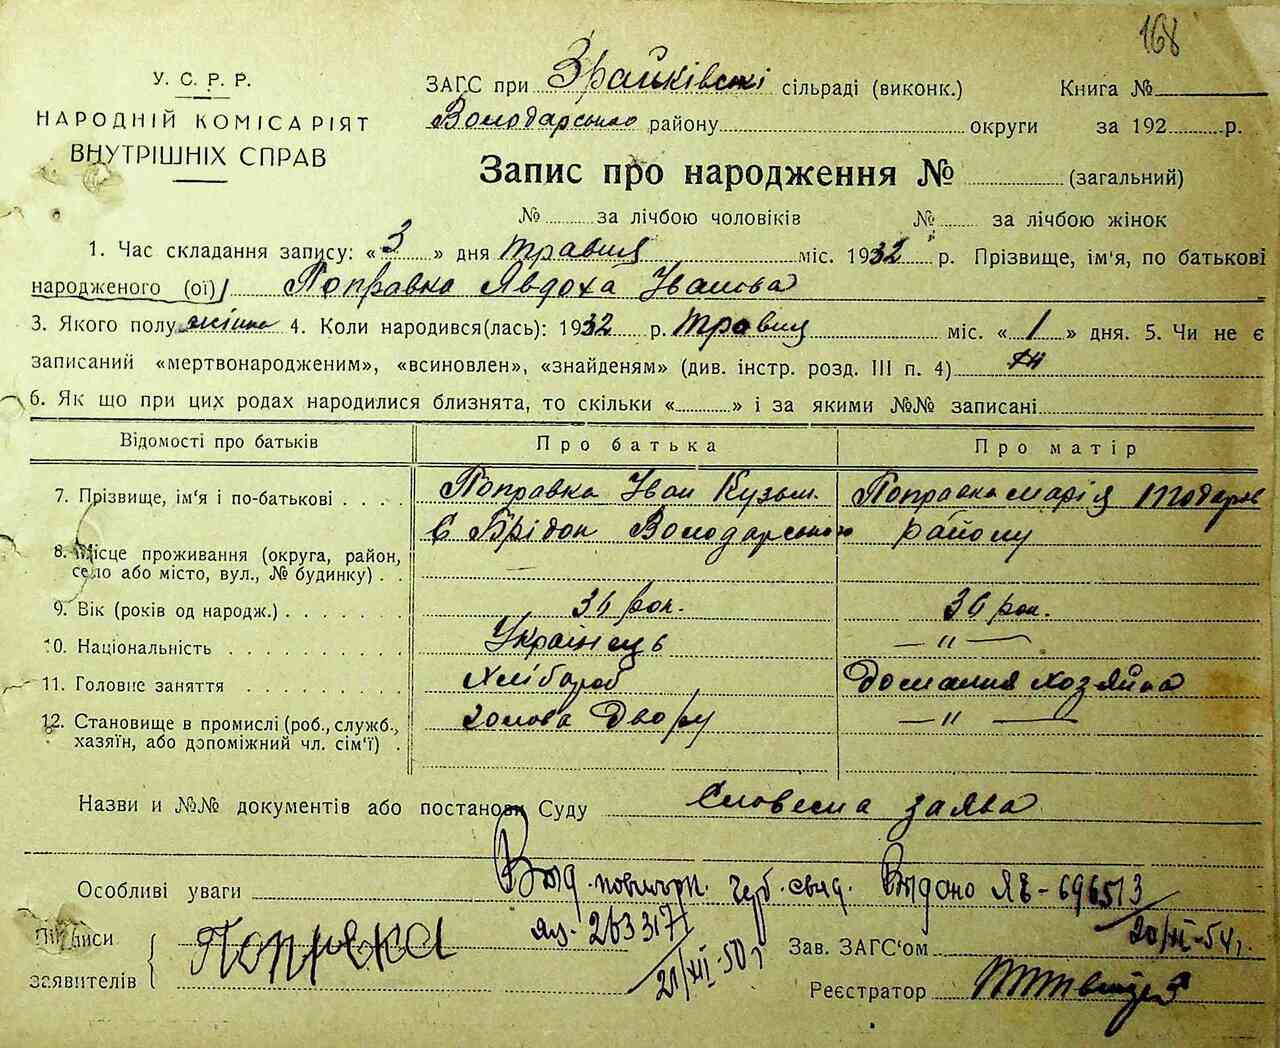 168
У. С. Р. Р.
НАРОДНІЙ КОМІСАРІЯТ
ВНУТРІШНІХ СПРАВ
ЗАГС при Зрайківські сільраді (виконк.) Книга №
Володарського району округи за 192 р.
Запис про народження № (загальний)
№ за лічбою чоловіків № за лічбою жінок
1. Час складання запису: «3» дня травня міс. 1932 р. Прізвище, ім'я, по батькові
народженого (ої) Поправка Явдоха Іванова
3. Якого полу жіноч 4. Коли народився(лась): 1932 р. травня міс. «1» дня. 5. Чи не є
записаний «мертвонародженим», «всиновлен», «знайденям» (див. інстр. розд. III п. 4)
6. Як що при цих родах народилися близнята, то скільки «» і за якими №№ записані
Відомості про батьків Про батька Про матір
7. Прізвище, ім'я і по-батькові . . . . Поправка Іван Кузьм. Поправка Марія Тодоров
8. Місце проживання (округа, район, село або місто, вул., № будинку) . . Володарського району
9. Вік (років од народж.) . . . . . . 36 рок. 36 рок.
10. Національність . . . . . . . . . Українець — " —
11. Головне заняття . . . . . . . . Хлібороб Домашня хозяйка
12. Становище в промислі (роб., служб., хазяїн, або допоміжний чл. сім'ї) . голова Двору — " —
Назви и №№ документів або постанови Суду Словесна заява
Особливі уваги Выд. повторн. свид. Выдано ЯЕ-696513
263317 20/XI-54г.
21/XII-50г
Підписи заявителів Поправка
Зав. ЗАГС'ом
Реєстратор